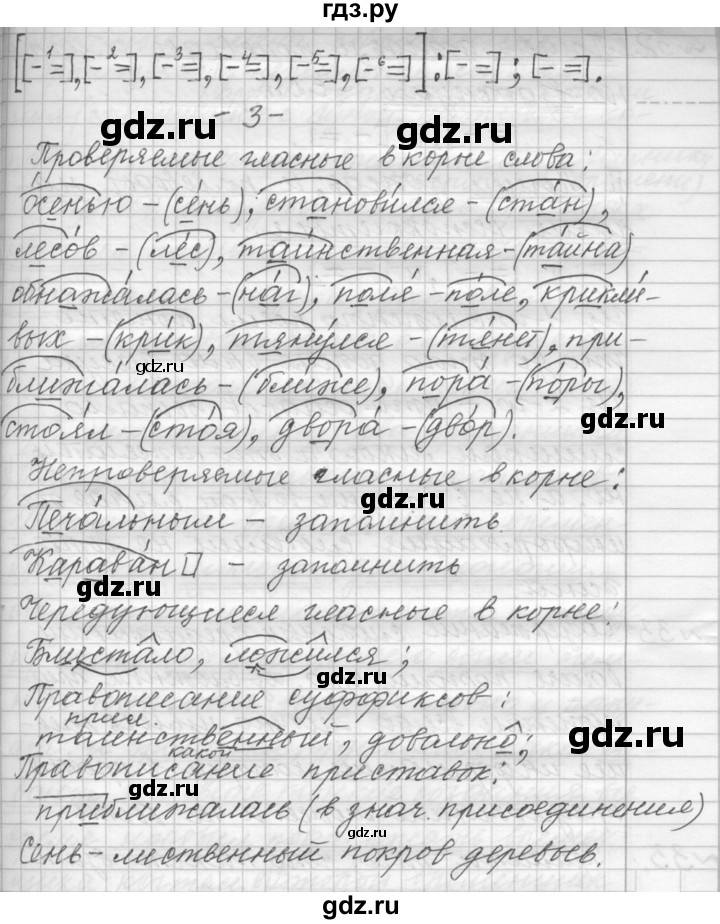 гдз.ру
[[-¹=],[-²=],[-³=],[-⁴=],[-⁵=],[-⁶=]]:[-=];[-=].
gdz.ru
gdz.ru
-3-
Проверяемые гласные в корне слова:
о́сенью – (се́нь), станови́лся – (ста́н),
gdz.ru
gdz.ru
лесо́в – (ле́с), таи́нственная – (та́йна)
обнажа́лась – (на́г), поля́ – по́ле, крикли́-
вых – (кри́к), тяну́лся – (тя́нет), при-
gdz.ru
ближа́лась – (бли́же), пора́ – (по́ры),
gdz.ru
стоя́л – (сто́я), двора́ – (дво́р).
Непроверяемые гласные в корне:
gdz.ru
Печа́льным – запомнить
Карава́н – запомнить
gdz.ru
Чередующиеся гласные в корне:
Блистало, ложился;
Правописание суффиксов:
прил.
таинственный, довольно;
gdz.ru
какой
Правописание приставок:
gdz.ru
приближалась (в знач. присоединения)
Сень – лиственный покров деревьев.
gdz.ru
gdz.ru